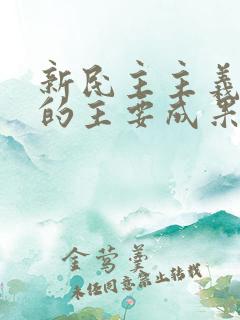 新民主主义
的主要成果
金莺羹
未经同意禁止转载